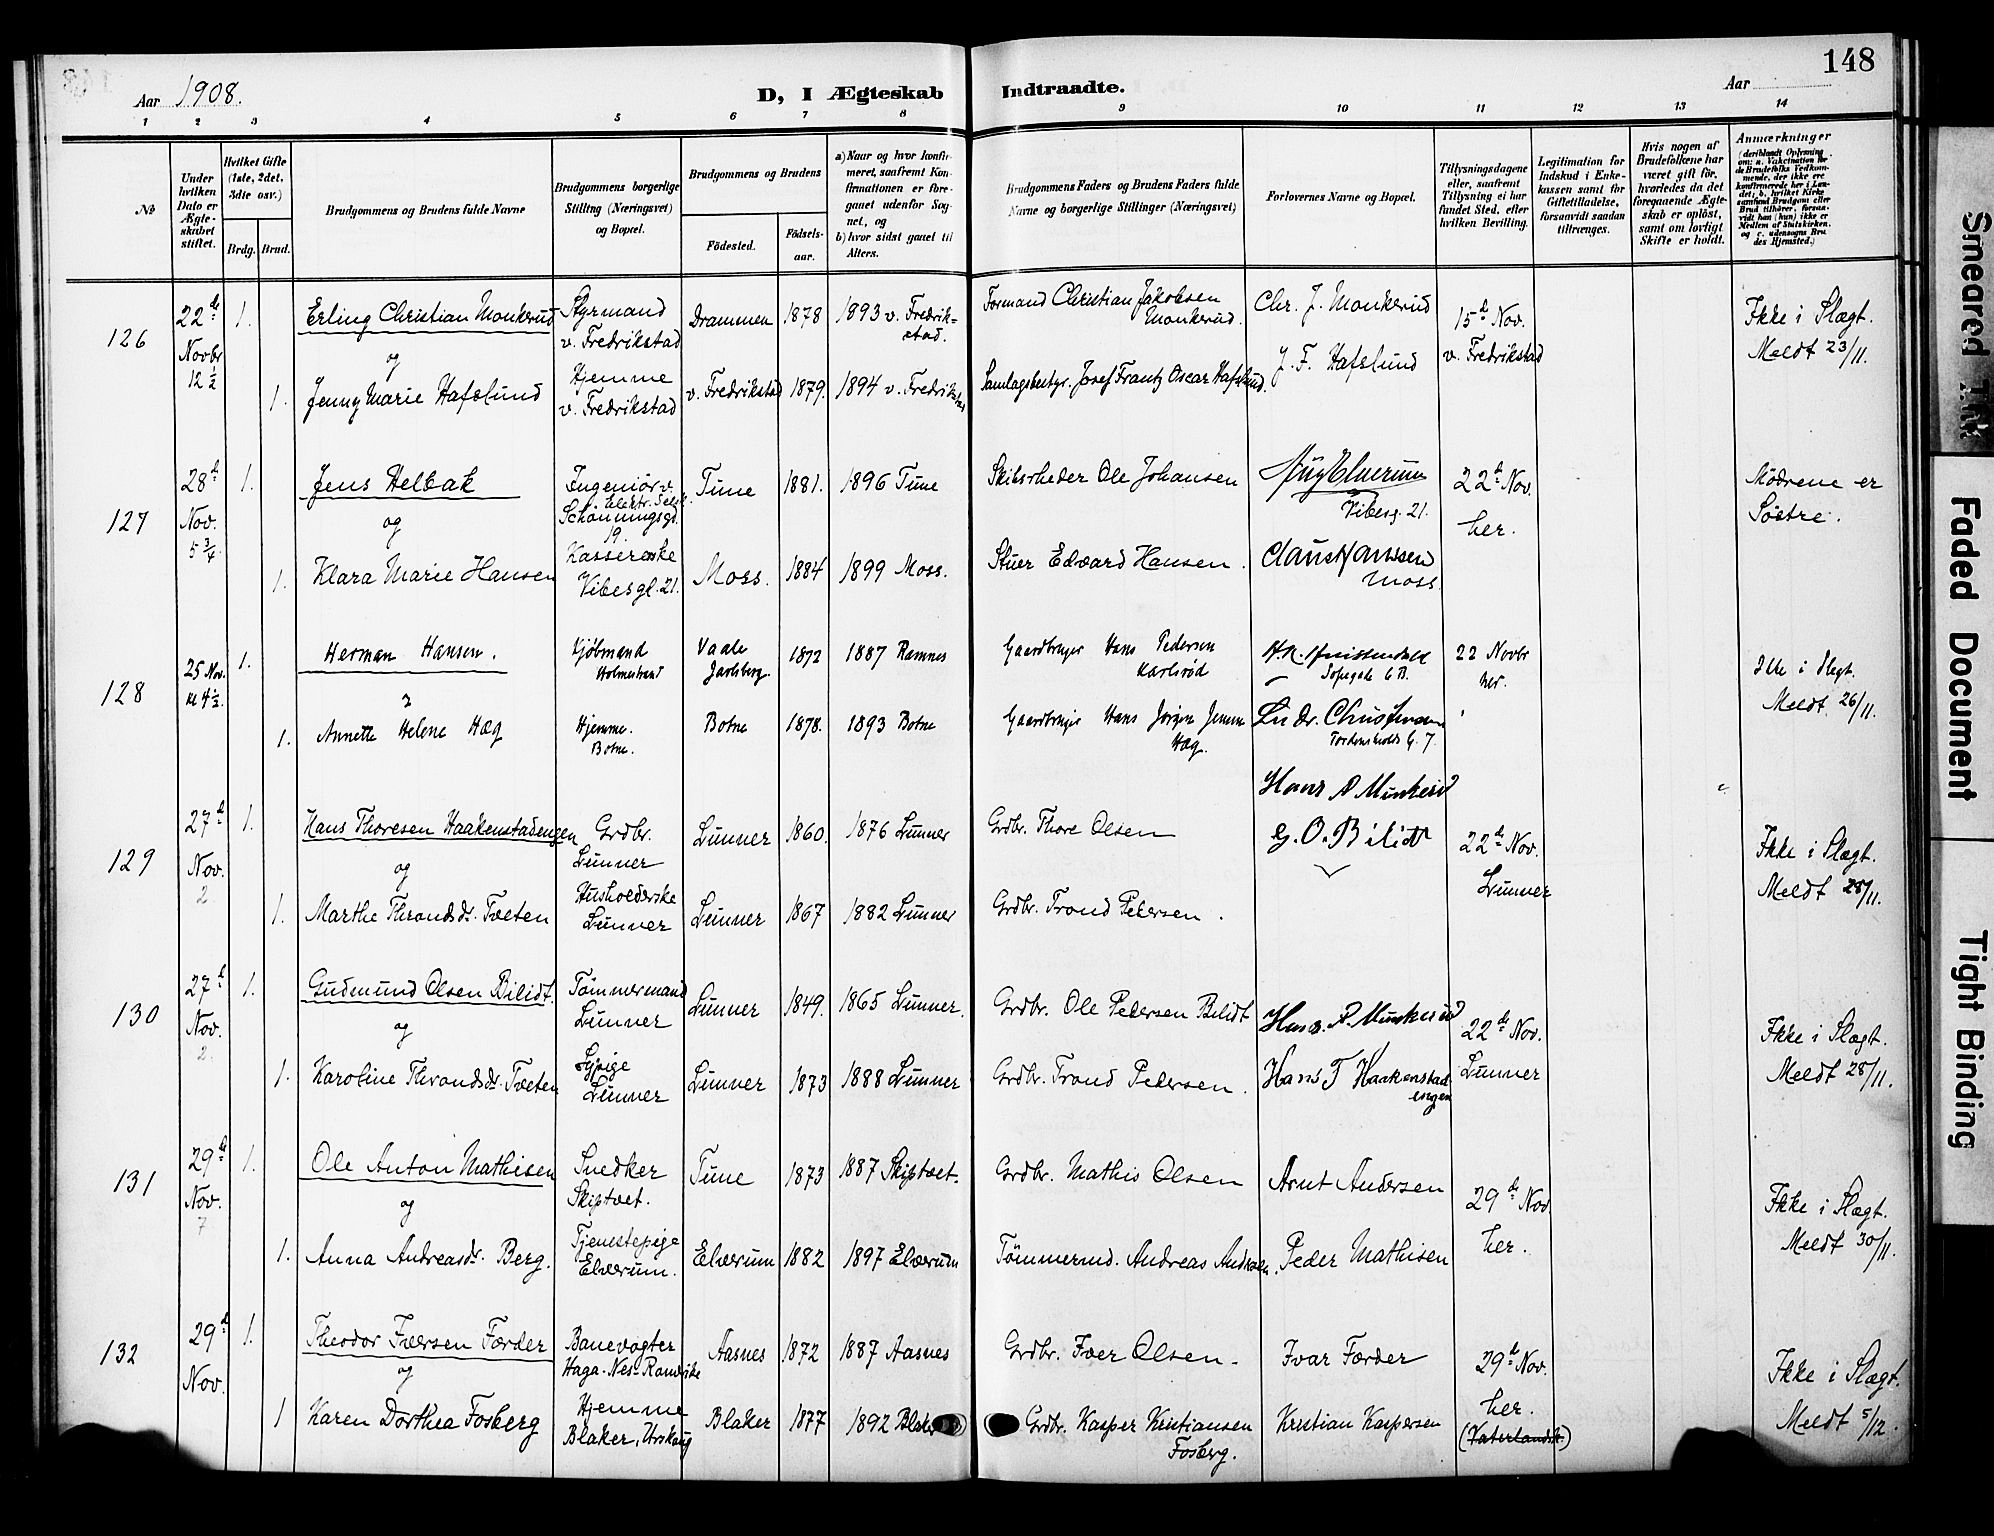 148
Aar 1908.
D, I Ægteskab Indtraadte.
Aar
1 2 3 4 5 6 7 8 9 10 11 12 13 14
№
Under hvilken Dato er Ægteskabet stiftet.
Hvilket Gifte (1ste, 2det, 3die osv.)
Brdg. Brud.
Brudgommens og Brudens fulde Navne
Brudgommens borgerlige Stilling (Næringsvei) og Bopæl.
Brudgommens og Brudens
Födested.
Födselsaar.
a) Naar og hvor konfirmeret, saafremt Konfirmationen er foregaaet udenfor Sognet, og
b) hvor sidst gaaet til Alters.
Brudgommens Faders og Brudens Faders fulde Navne og borgerlige Stillinger (Næringsvei)
Forlovernes Navne og Bopæl.
Tillysningsdagene eller, saafremt Tillysning ei har fundet Sted, efter hvilken Bevilling.
Legitimation for Indskud i Enkekassen samt for Giftetilladelse, forsaavidt saadan tiltrænges.
Hvis nogen af Brudefolkene har været gift för, hvorledes da det foregaaende Ægteskab er oplöst, samt om lovligt Skifte er holdt.
Anmærkninger
(deriblandt Oplysning om: a. Vakcination for de Brudefolks Vedkommende, der ikke ere konfirmerede her i Landet; b. hvilket Kirkesamfund Brudgom eller Brud tilhörer, forsaavidt han (hun) ikke er Medlem af Statskirken, og c. udensogns Brudes Hjemsted.)
126
22de Novbr 12 1/2
1. Erling Christian Monkerud
Styrmand v. Fredrikstad
Drammen 1878 1893 v. Fredrikstad.
Formand Christian Jakobsen Monkerud.
Chr. J. Monkerud
15de Nov. v. Fredrikstad
Ikke i Slægt. Meldt 23/11.
og
1. Jenny Marie Hafslund
Hjemme v. Fredrikstad
v. Fredrikstad 1879. 1894 v. Fredrikstad
Samlagsbestyr. Josef Frantz Oscar Hafslund.
J. F. Hafslund
127
28de Nov. 5 3/4
1. Jens Helbak
Ingeniör v. Elektr. Selsk. Schönningsgd. 19.
Tune 1881. 1896 Tune
Skibsrheder Ole Johansen
Vibesg. 21.
22de Nov. her.
Mödrene er Söstre.
og
1. Klara Marie Hansen
Kassererske Vibesgt. 21.
Moss. 1884 1899 Moss.
Stuer Edvard Hansen.
Claus Hanssen Moss
128
25 Nov. kl 4 1/2.
1. Herman Hansen.
Kjøbmand Holmestrand
Vaale Jarlsberg. 1872 1887 Ramnes
Gaardbruger Hans Pedersen Karlsrød
Sofiegade 6 B.
22 Novbr her.
Ikke i Slegt. Meldt 26/11.
1. Annette Helene Hæg
Hjemme. Botne.
Botne 1878. 1893 Botne
Gaardbruger Hans Jørgen Jensen Hæg.
Tordenskiolds G. 7.
129
27de Nov. 2
1. Hans Thoresen Haakenstadengen
Grdbr. Lunner
Lunner 1860. 1876 Lunner
Grdbr. Thore Olsen
Hans A Munkerud
G. O. Bilidt
22de Nov. Lunner
Ikke i Slægt. Meldt 28/11.
og
1. Marthe Throndsdr. Tveten
Husholderske Lunner
Lunner 1867 1882 Lunner
Grdbr. Trond Pedersen.
130
27de Nov. 2.
1. Gudmund Olsen Bilidt.
Tömmermand Lunner
Lunner 1849. 1865 Lunner.
Grdbr. Ole Pedersen Bilidt
Hans. A. Munkerud
22de Nov. Lunner
Ikke i Slægt. Meldt 28/11.
og
1. Karoline Throndsdr. Tveten
Sypige Lunner
Lunner 1873 1888 Lunner
Grdbr. Trond Pedersen.
Hans T Haakenstadengen
131
29de Nov. 7
1. Ole Anton Mathisen
Snedker Skiptvet.
Tune 1873 1887 Skiptvet.
Grdbr. Mathis Olsen
Arnt Andersen
29de Nov. her.
Ikke i Slægt. Meldt 30/11.
og
1. Anna Andreasdr. Berg.
Tjenestepige Elverum.
Elverum 1882 1897 Elverum
Tömmermd. Andreas Andersen.
Peder Mathisen
132
29de Nov.
1. Theodor Iversen Forder
Banevogter Haga-Nes-Romerike
Aasnes 1872 1887 Aasnes
Grdbr. Iver Olsen.
Ivar Forder
29de Nov. her. (Vaterlandsk.)
Ikke i Slægt. Meldt 5/12.
og
1 Karen Dorthea Fosberg
Hjemme Blaker, Urskoug
Blaker 1877 1892 Blaker
Grdbr. Kasper Kristiansen Fosberg.
Kristian Kaspersen
Smeared Ink
Faded Document
Tight Binding